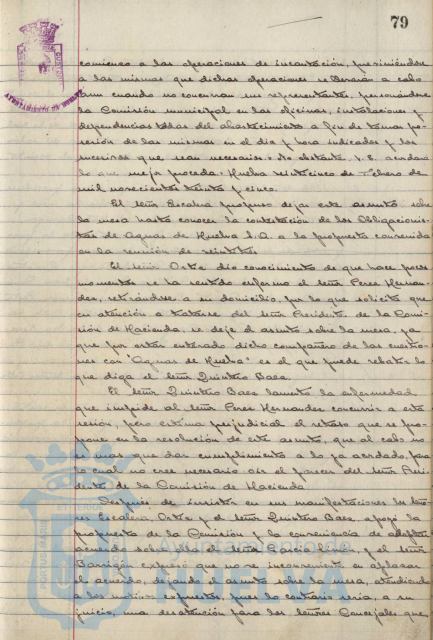 79
comienzo a las operaciones de incautación, previniéndose
a las mismas que dichas operaciones se llevarán a cabo
aun cuando no concurran sus representantes, personándose
la Comisión municipal en las oficinas, instalaciones y
dependencias todas del abastecimiento a fin de tomar po-
sesión de las mismas en el día y hora indicados y los
sucesivos que sean necesarios. No obstante, V. E. acordará
lo que mejor proceda. Huelva veinticinco de Febrero de
mil novecientos treinta y cinco.
El señor Escalera propuso dejar este asunto sobre
la mesa hasta conocer la contestación de los Obligacionis-
tas de Aguas de Huelva S.A. a la propuesta convenida
en la reunión de
El señor Ortiz dio conocimiento de que hace pocos
momentos se ha sentido enfermo el señor Perez Hernan-
dez, retirándose a su domicilio, por lo que solicita que
en atención a tratarse del señor Presidente de la Comi-
sión de Hacienda, se deje el asunto sobre la mesa, ya
que por estar enterado dicho compañero de las cuestio-
nes con "Aguas de Huelva" es el que puede rebatir lo
que diga el señor Quintero Baez.
El señor Quintero Baez lamenta la enfermedad
que impide al señor Perez Hernandez concurrir a esta
sesión, pero estima perjudicial el retraso que se pro-
pone en la resolución de este asunto, que al cabo no
es mas que dar cumplimiento a lo ya acordado, para
lo cual no cree necesario oir el parecer del señor Presi-
dente de la Comisión de Hacienda
Después de insistir en sus manifestaciones los seño-
res Escalera, Ortiz y el señor Quintero Baez, apoyó la
propuesta de la Comisión y la conveniencia de adoptar
acuerdo sobre ella el señor Garcia y el señor
Barrigón expresó que no ve inconveniente en aplazar
el acuerdo, dejando el asunto sobre la mesa, atendiendo
a los motivos expuestos, pues lo contrario seria, a su
juicio, una desatención para los señores Concejales que,